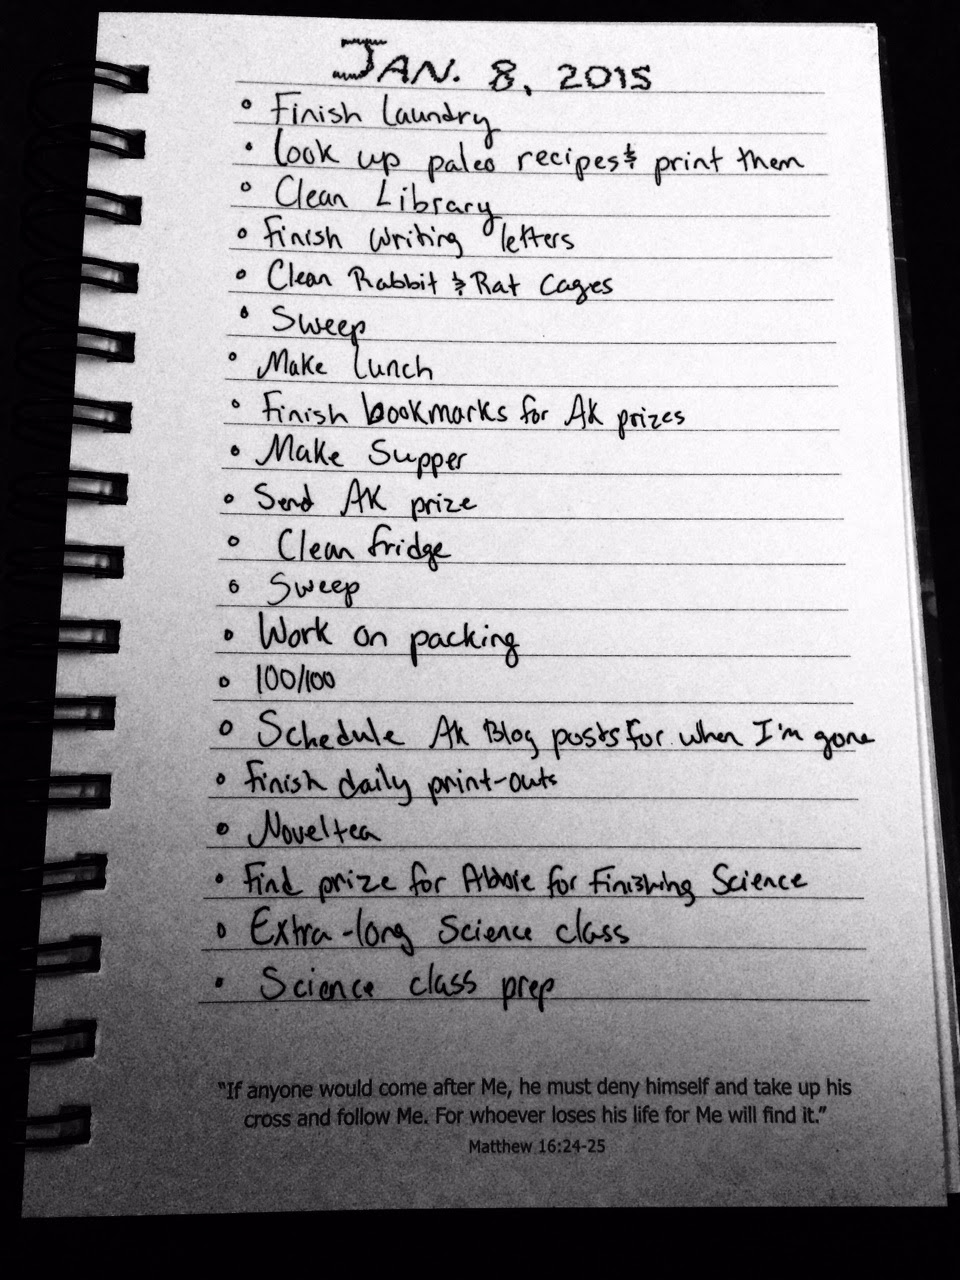 JAN. 8, 2015
• Finish laundry
• Look up paleo recipes & print them
• Clean Library
• Finish writing letters
• Clean Rabbit & Rat Cages
• Sweep
• Make lunch
• Finish bookmarks for AK prizes
• Make Supper
• Send AK prize
• Clean fridge
• Sweep
• Work on packing
• 100/100
• Schedule AK Blog posts for when I'm gone
• Finish daily print-outs
• Noveltea
• Find prize for for Finishing Science
• Extra-long Science class
• Science class prep
"If anyone would come after Me, he must deny himself and take up his
cross and follow Me. For whoever loses his life for Me will find it."
Matthew 16:24-25